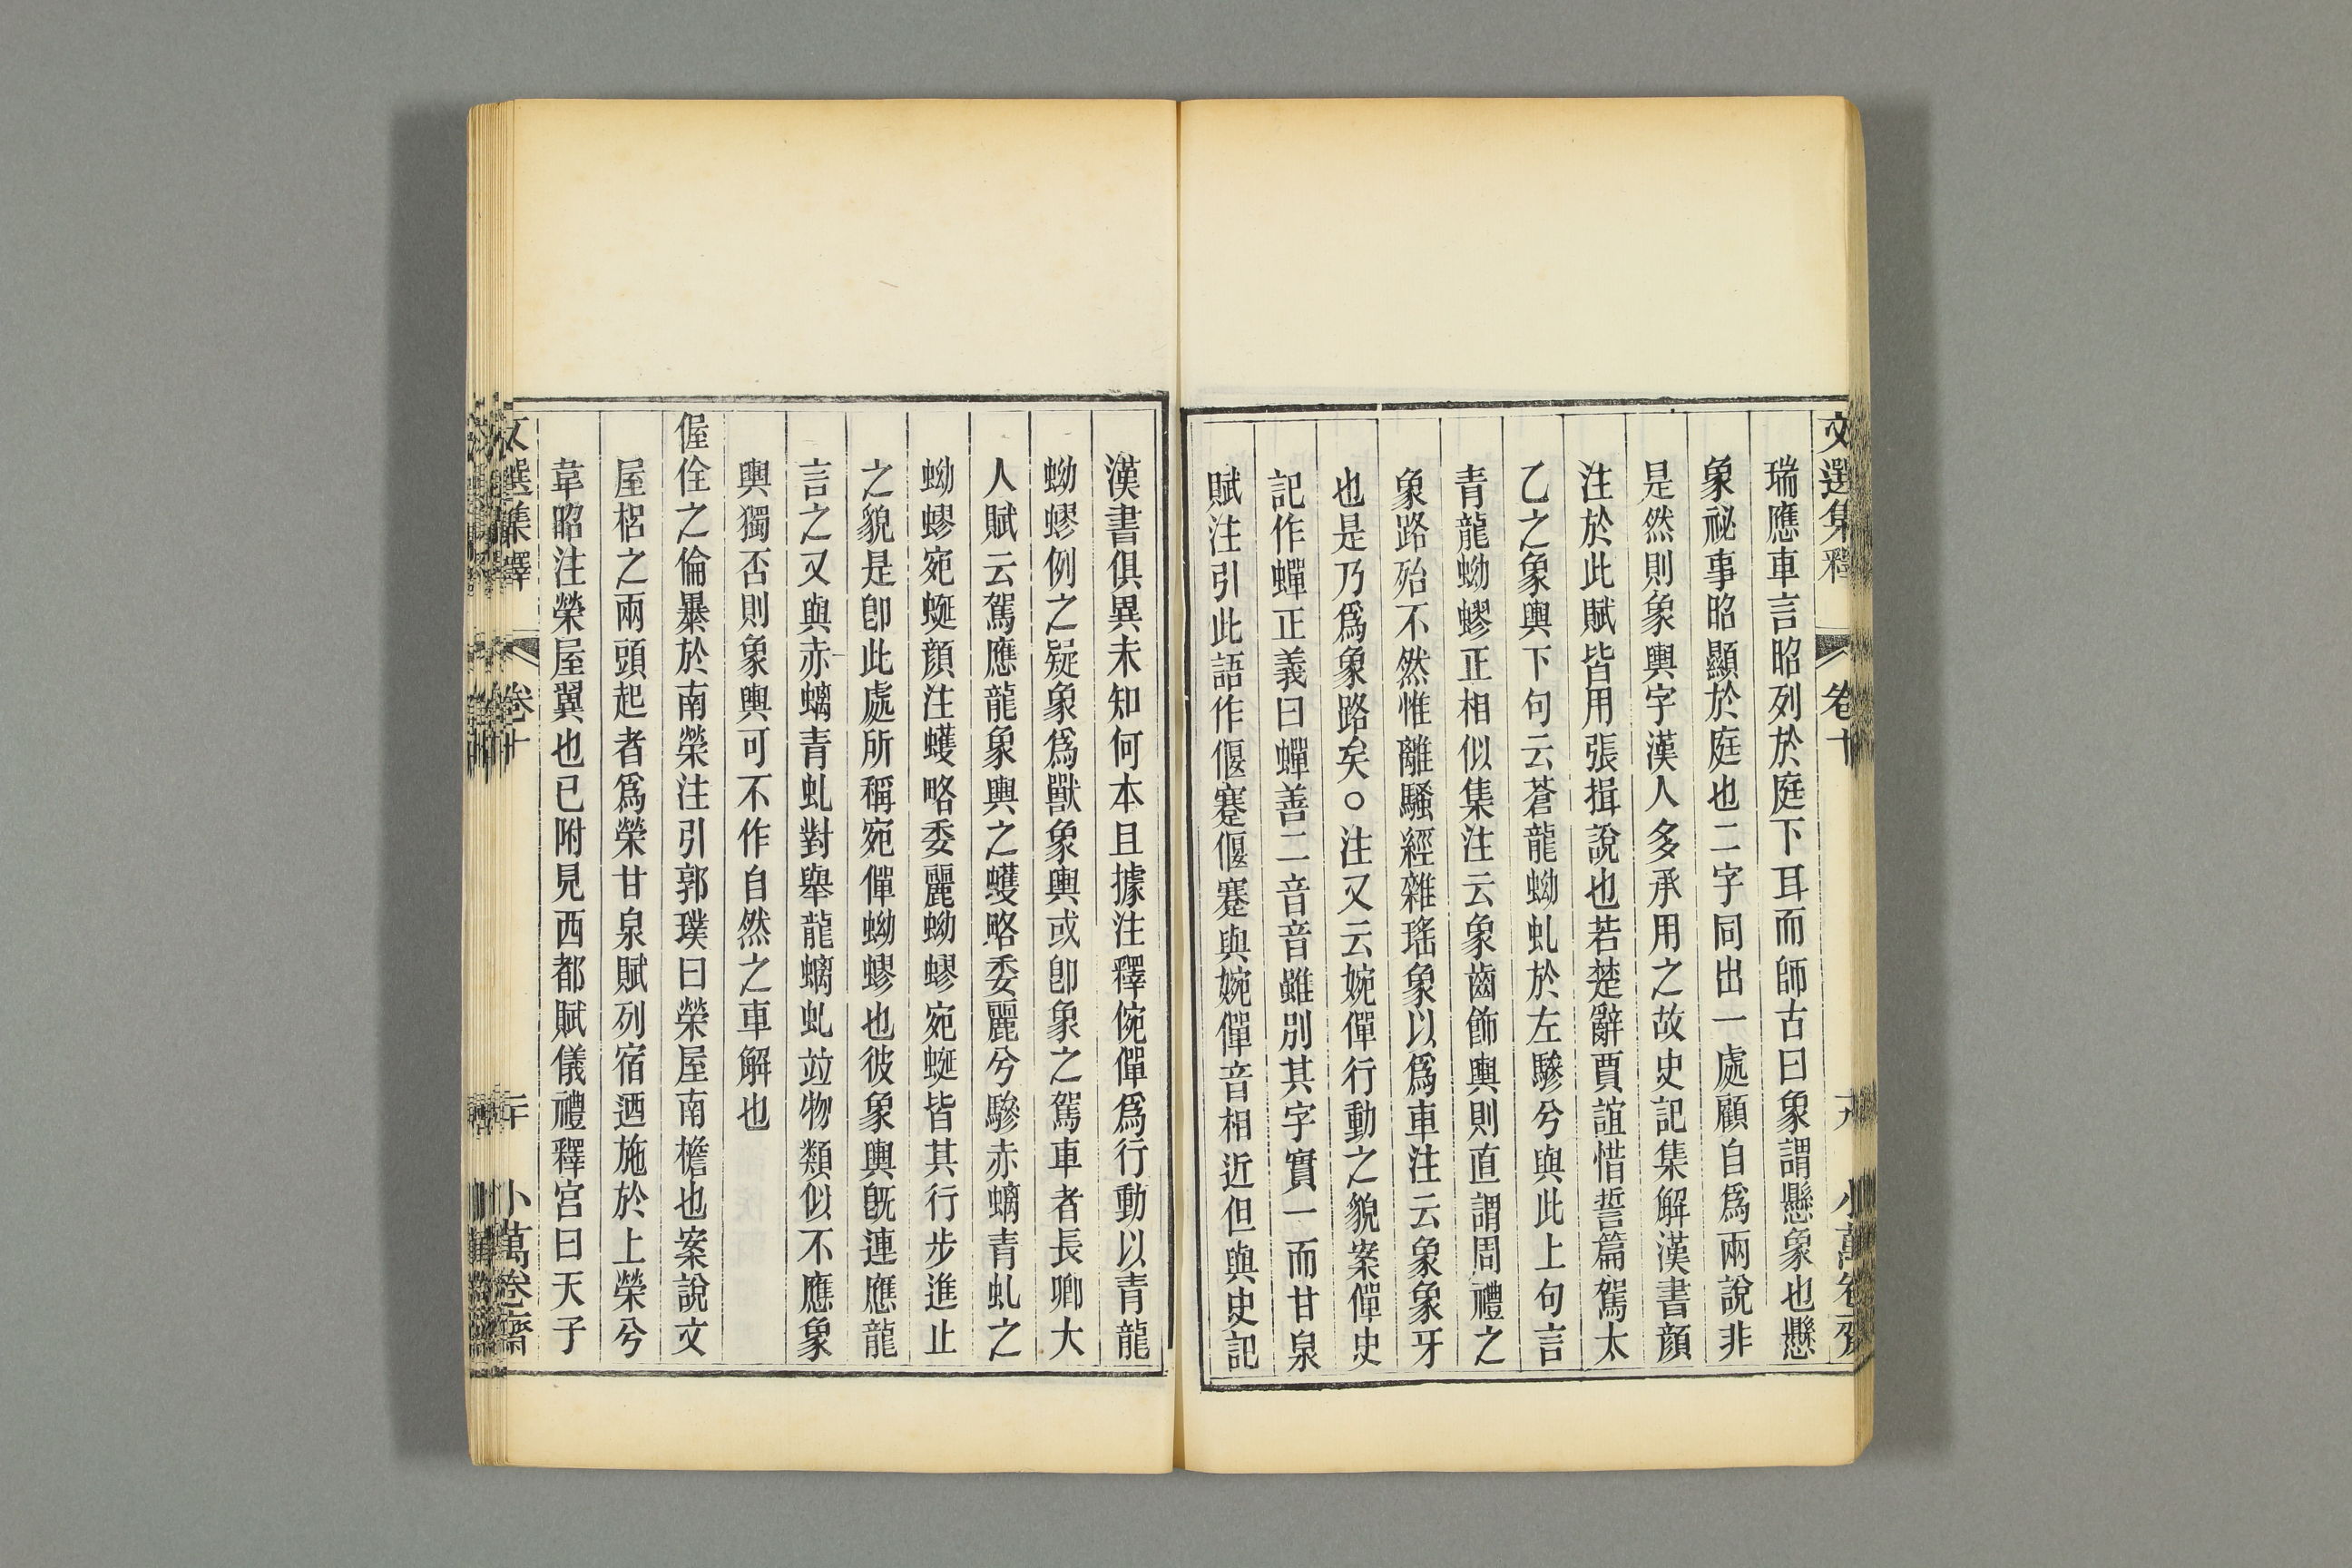 文選集釋 卷十 十九 小萬卷齋
瑞應車言昭列於庭下耳而師古曰象謂懸象也懸
象祕事昭顯於庭也二字同出一處顧自爲兩說非
是然則象輿字漢人多承用之故史記集解漢書顏
注於此賦皆用張揖說也若楚辭賈誼惜誓篇駕太
乙之象輿下句云蒼龍蚴虬於左驂兮與此上句言
青龍蚴蟉正相似集注云象齒飾輿則直謂周禮之
象路殆不然惟離騷經雜瑤象以爲車注云象象牙
也是乃爲象路矣○注又云婉僤行動之貌案僤史
記作蟬正義曰蟬善二音音雖別其字實一而甘泉
賦注引此語作偃蹇偃蹇與婉僤音相近但與史記
漢書俱異未知何本且據注釋婉僤爲行動以青龍
蚴蟉例之疑象爲獸象輿或卽象之駕車者長卿大
人賦云駕應龍象輿之蠖略委麗兮驂赤螭青虬之
蚴蟉宛蜒顏注蠖略委麗蚴蟉宛蜒皆其行步進止
之貌是卽此處所稱宛僤蚴蟉也彼象輿旣連應龍
言之又與赤螭青虬對舉龍螭虬竝物類似不應象
輿獨否則象輿可不作自然之車解也
偓佺之倫暴於南榮注引郭璞曰榮屋南檐也案說文
屋梠之兩頭起者爲榮甘泉賦列宿迺施於上榮兮
韋昭注榮屋翼也已附見西都賦儀禮釋宫曰天子
文選集釋 卷十 二十 小萬卷齋